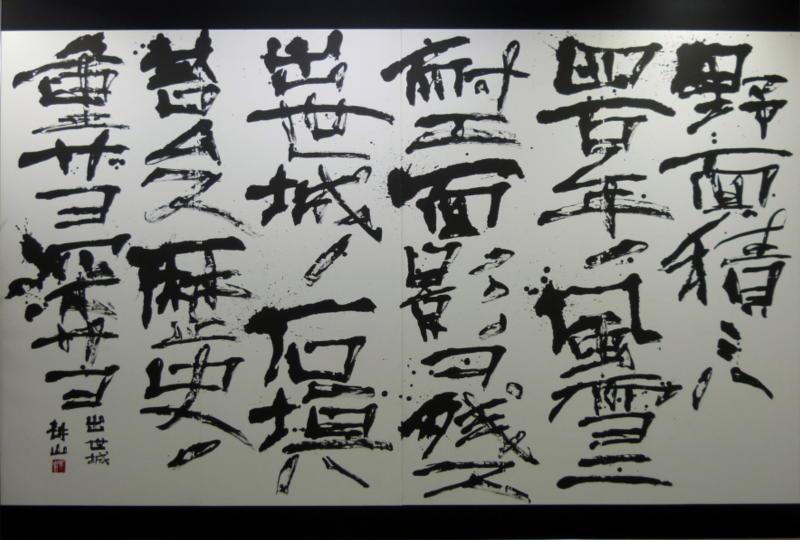 野面積ミハ
四百年ノ風雪ニ
耐エ面影ヲ残ス
出世城ノ石垣ハ
苔ムス歴史ノ
重サヨ深サヨ
出世城